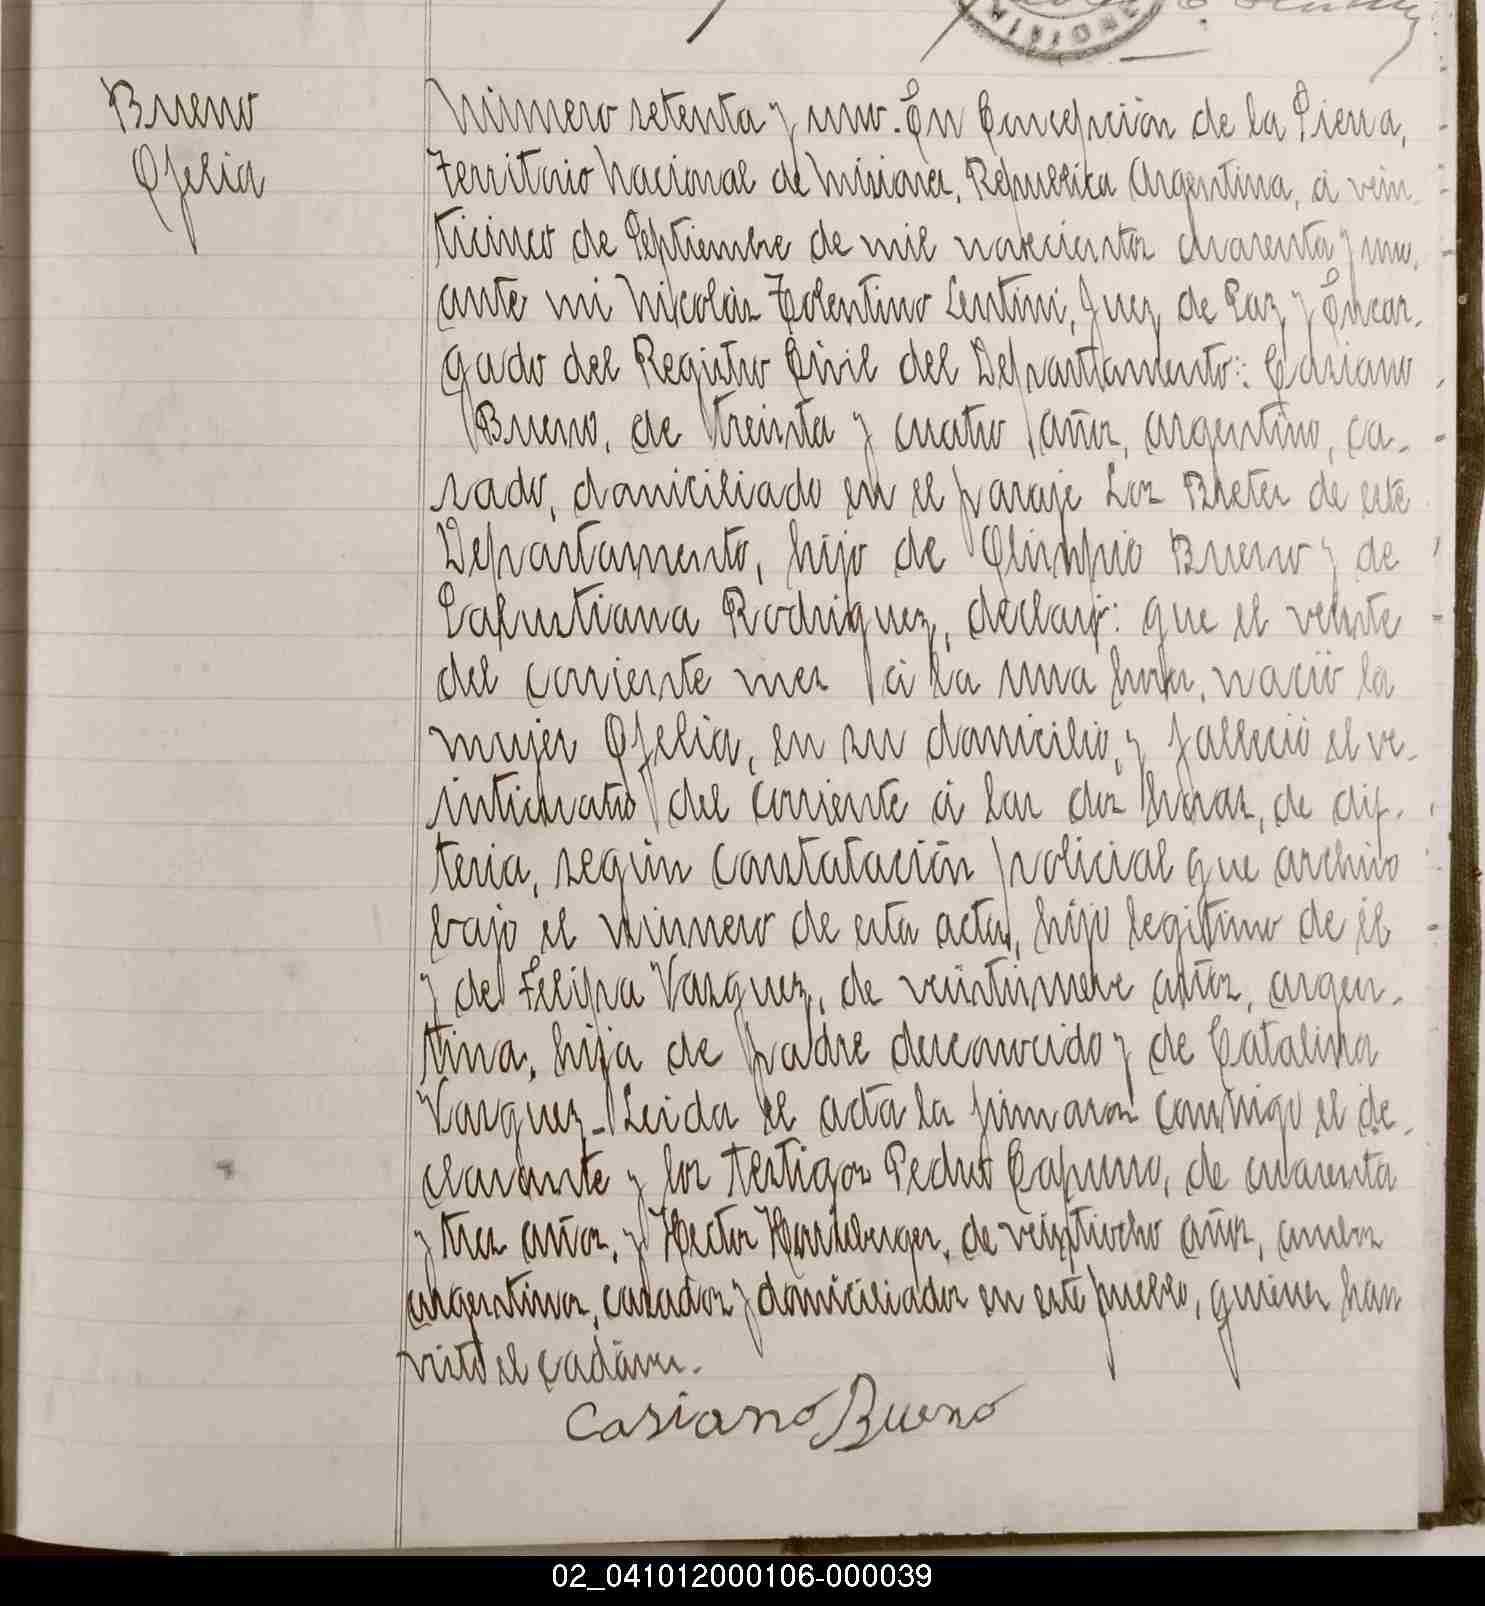 MISIONES
Bueno
Ofelia
Número setenta y uno. En Concepción de la Sierra,
Territorio Nacional de Misiones, República Argentina, a vein
ticinco de Septiembre de mil novecientos cuarenta y uno,
ante mi Nicolás Tolentino Lentini, Juez de Paz y Encar-
gado del Registro Civil del Departamento: Casiano
Bueno, de treinta y cuatro años, argentino, ca-
sado, domiciliado en el paraje Los Bretes de este
Departamento, hijo de Olimpio Bueno y de
Salustiana Rodriguez, declaró: que el veinte
del corriente mes a la una hora, nació la
mujer Ofelia, en su domicilio, y falleció el ve-
inticuatro del corriente a las dos horas, de dif-
teria, según constatación policial que archivo
bajo el número de esta acta, hijo legitimo de él
y de Felipa Vasquez, de veintinueve años, argen-
tina, hija de padre desconocido y de Catalina
Vasquez - Leida el acta la firmaron conmigo el de-
clarante y los testigos Pedro de cuarenta
y tres años, y Hector de veintiocho años, ambos
argentinos, casados y domiciliados en este pueblo, quienes han
visto el cadáver.
Casiano Bueno
02_041012000106-000039